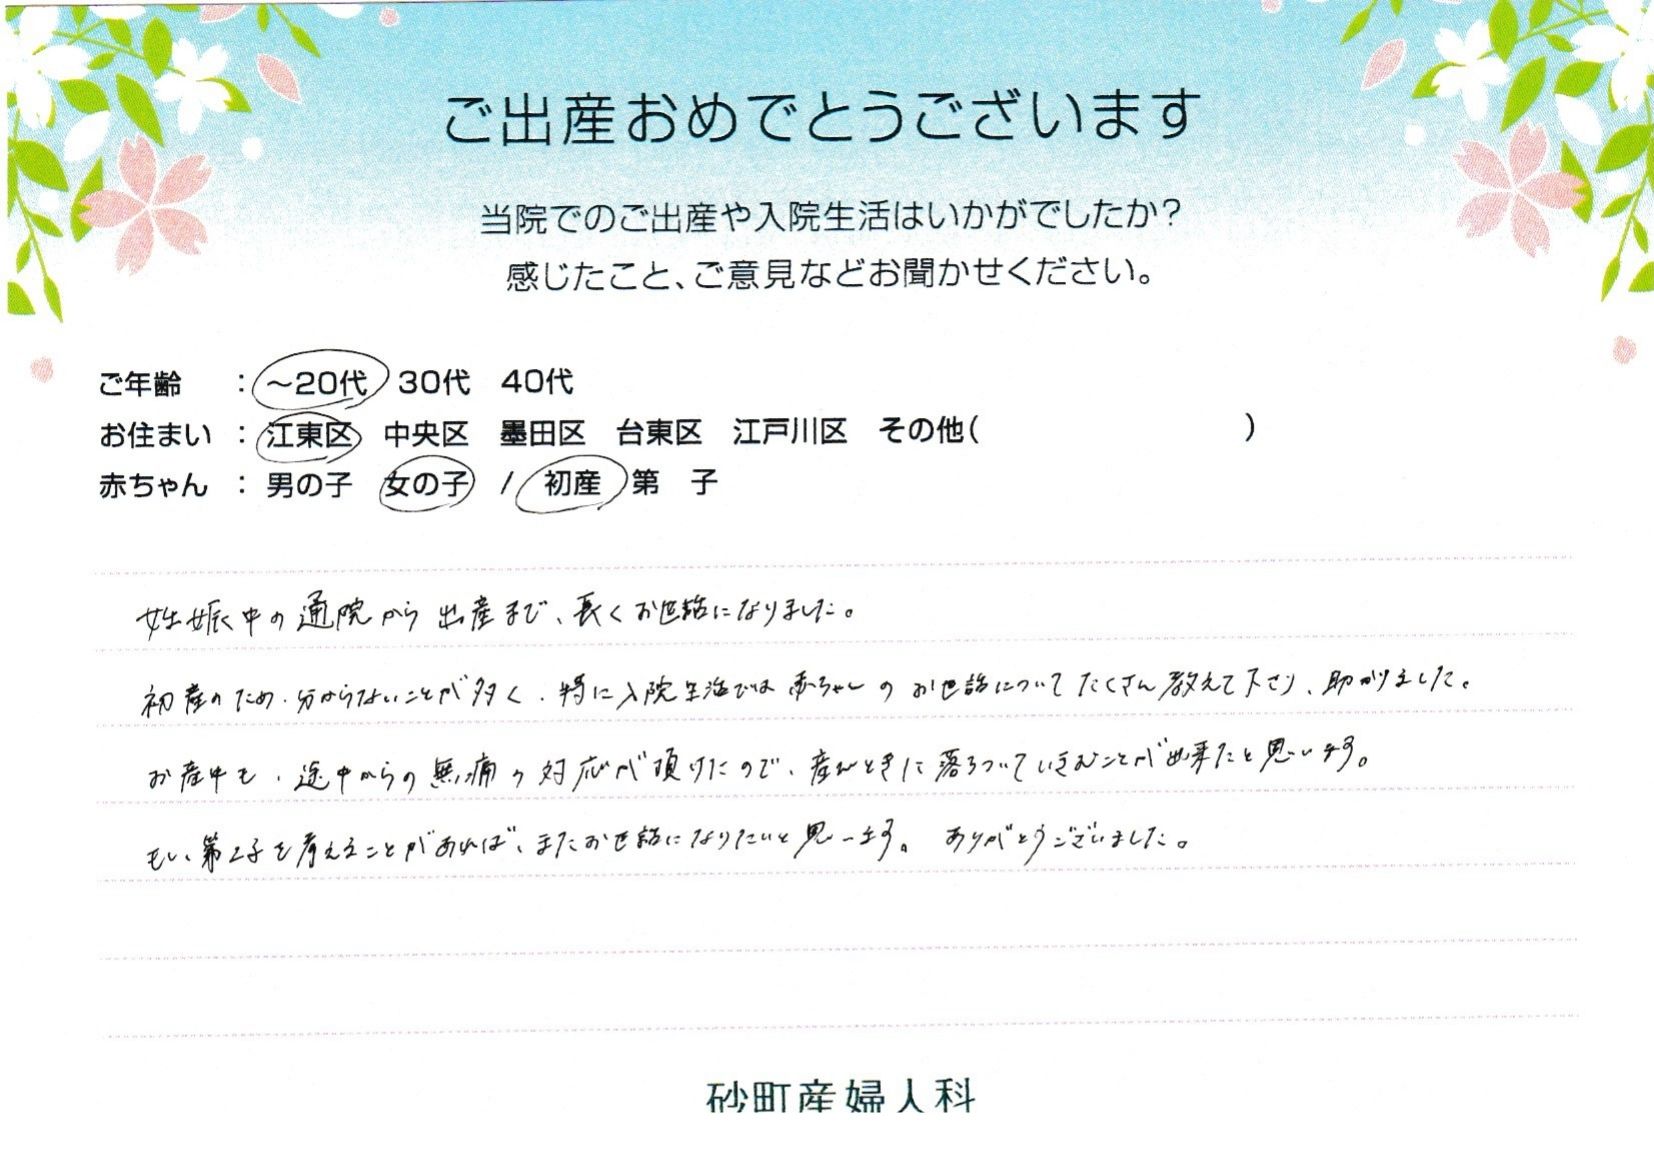 ご出産おめでとうございます
当院でのご出産や入院生活はいかがでしたか?
感じたこと、ご意見などお聞かせください。
ご年齢 : ～20代 30代 40代
お住まい : 江東区 中央区 墨田区 台東区 江戸川区 その他( )
赤ちゃん : 男の子 女の子 / 初産 第 子
妊娠中の通院から出産まで、長くお世話になりました。
初産のため、分からないことが多く、特に入院生活では赤ちゃんのお世話についてたくさん教えて下さり、助かりました。
お産中も、途中からの無痛の対応が頂けたので、産むときに落ちついていきむことが出来たと思います。
もし、第2子を考えることがあれば、またお世話になりたいと思います。 ありがとうございました。
砂町産婦人科